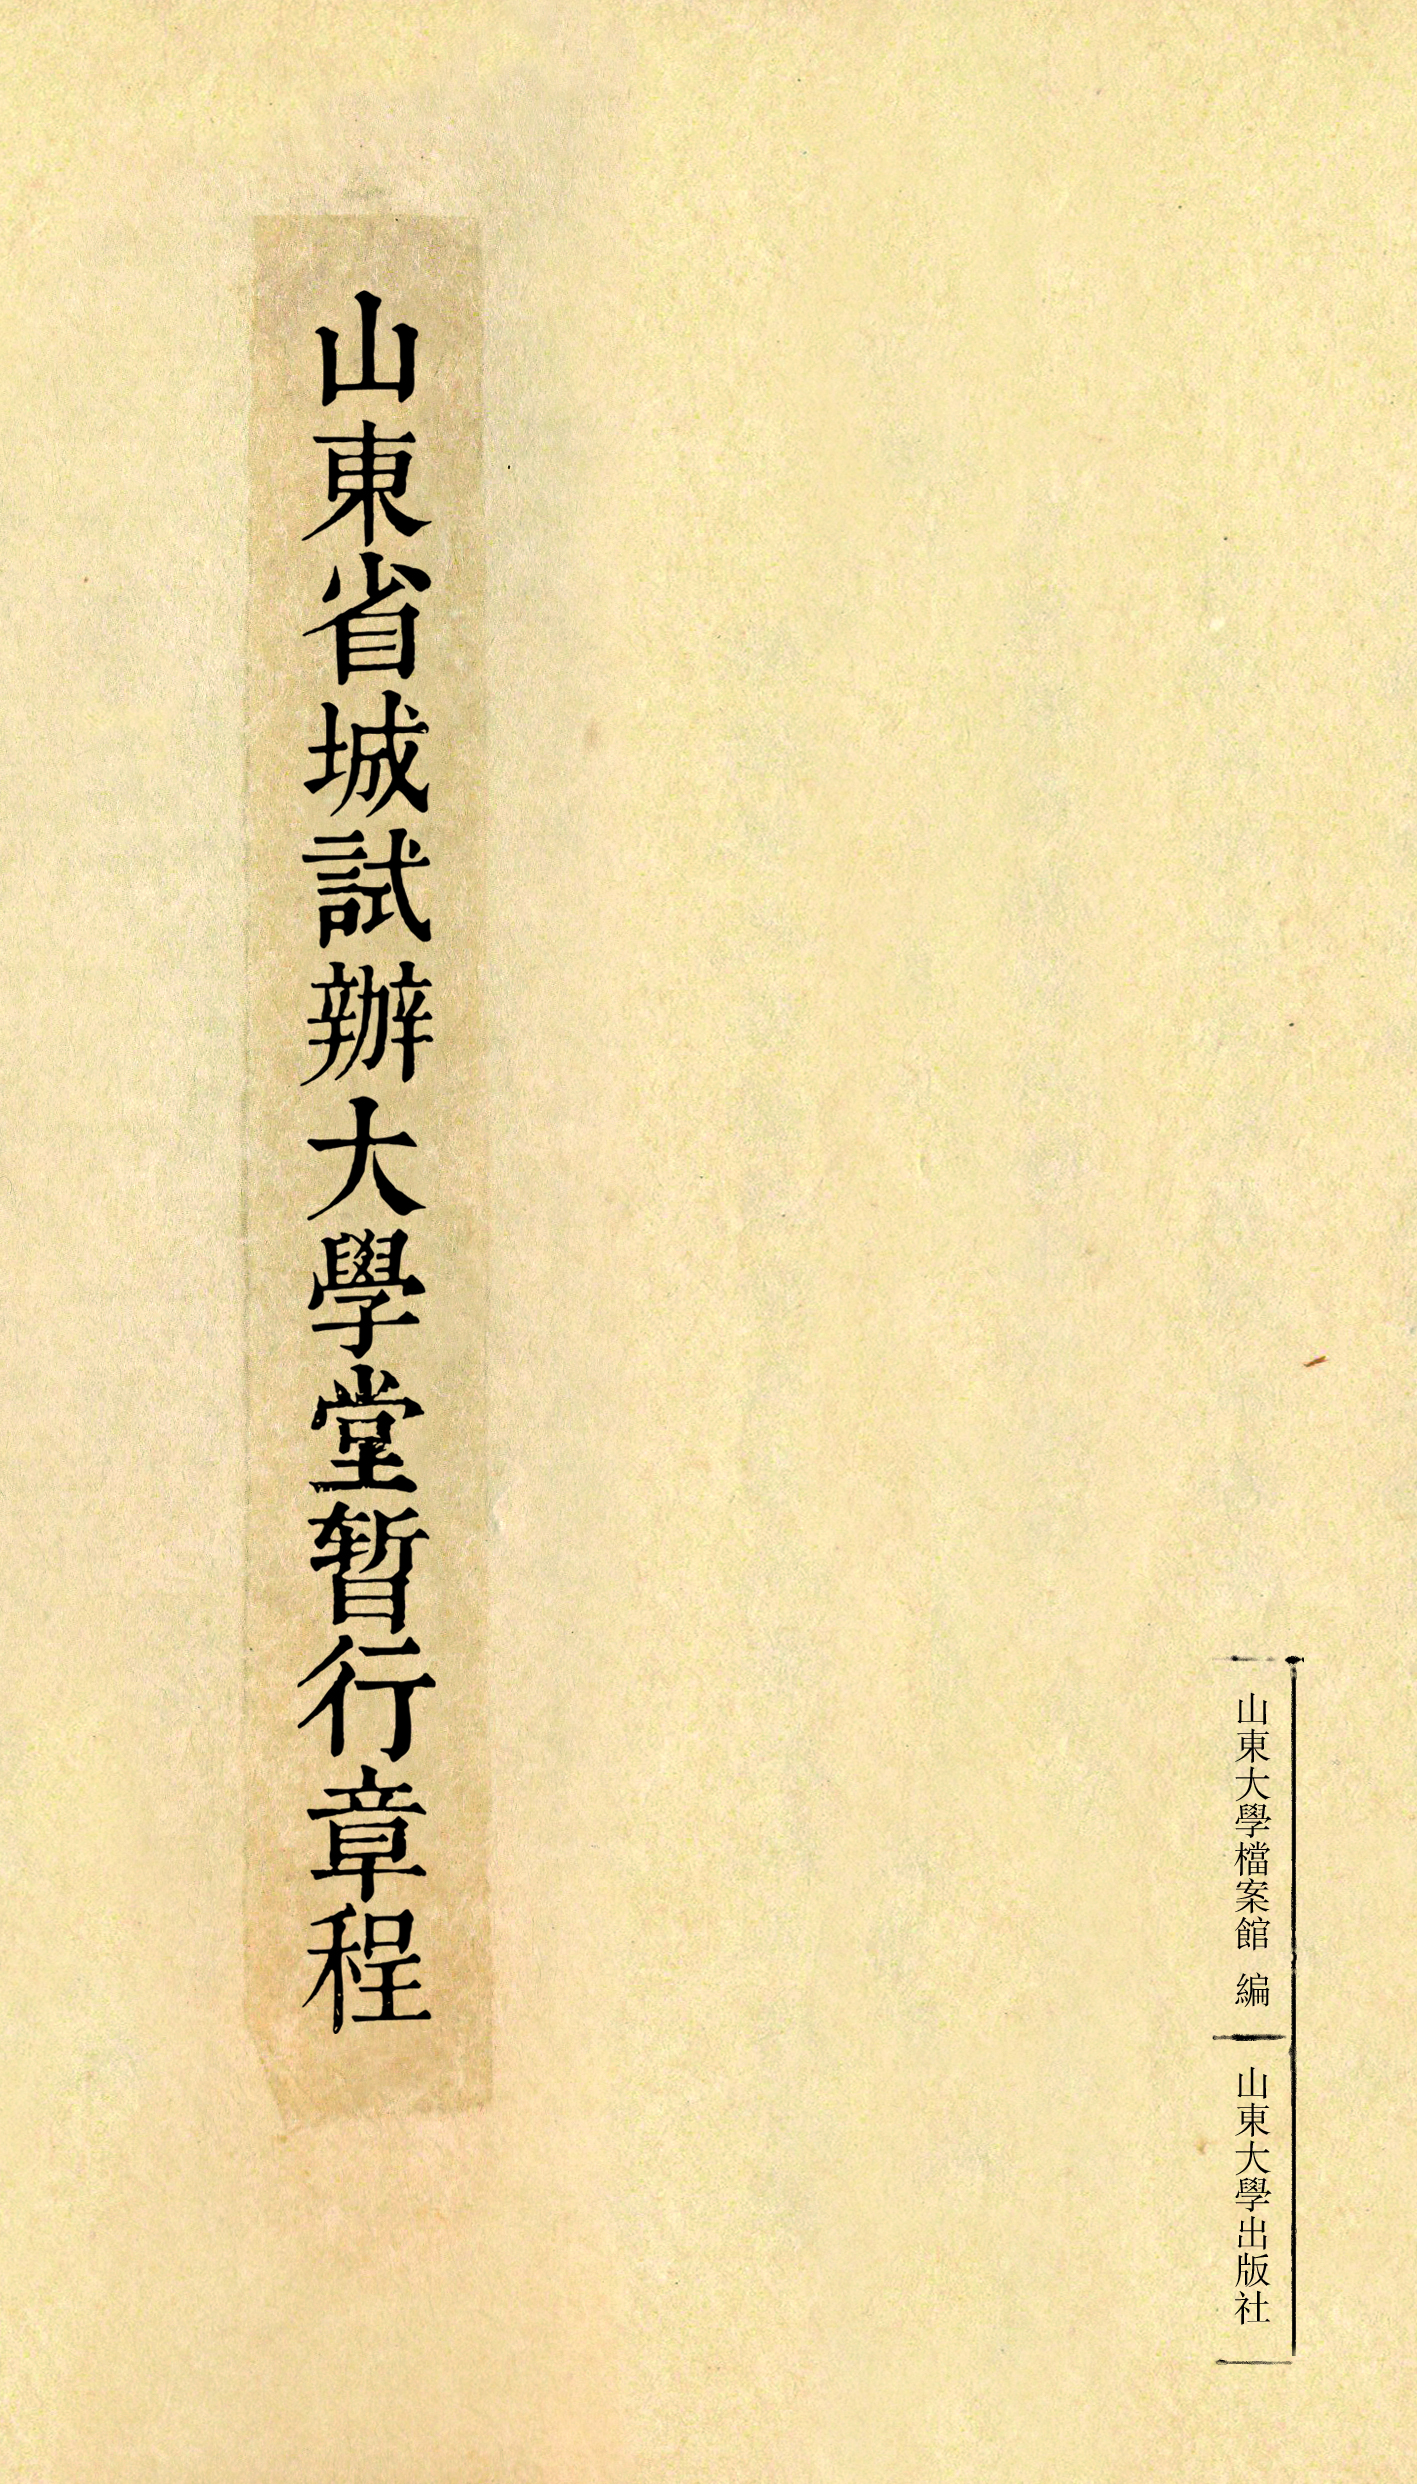 山東省城試辦大學堂暫行章程
山東大學檔案館 編
山東大學出版社